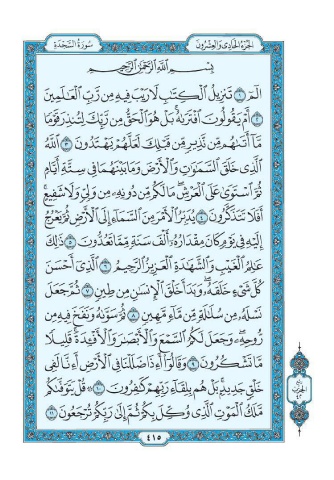 سُورَةُ السَّجْدَةِ
الجُزْءُ الحَادِي وَالعِشْرُونَ
بِسْمِ اللَّهِ الرَّحْمَٰنِ الرَّحِيمِ
الٓمٓ ١ تَنزِيلُ ٱلْكِتَٰبِ لَا رَيْبَ فِيهِ مِن رَّبِّ ٱلْعَٰلَمِينَ
٢ أَمْ يَقُولُونَ ٱفْتَرَىٰهُ بَلْ هُوَ ٱلْحَقُّ مِن رَّبِّكَ لِتُنذِرَ قَوْمًا
مَّآ أَتَىٰهُم مِّن نَّذِيرٍ مِّن قَبْلِكَ لَعَلَّهُمْ يَهْتَدُونَ ٣ ٱللَّهُ
ٱلَّذِى خَلَقَ ٱلسَّمَٰوَٰتِ وَٱلْأَرْضَ وَمَا بَيْنَهُمَا فِى سِتَّةِ أَيَّامٍ
ثُمَّ ٱسْتَوَىٰ عَلَى ٱلْعَرْشِ مَا لَكُم مِّن دُونِهِۦ مِن وَلِىٍّ وَلَا شَفِيعٍ
أَفَلَا تَتَذَكَّرُونَ ٤ يُدَبِّرُ ٱلْأَمْرَ مِنَ ٱلسَّمَآءِ إِلَى ٱلْأَرْضِ ثُمَّ يَعْرُجُ
إِلَيْهِ فِى يَوْمٍ كَانَ مِقْدَارُهُۥٓ أَلْفَ سَنَةٍ مِّمَّا تَعُدُّونَ ٥ ذَٰلِكَ
عَٰلِمُ ٱلْغَيْبِ وَٱلشَّهَٰدَةِ ٱلْعَزِيزُ ٱلرَّحِيمُ ٦ ٱلَّذِىٓ أَحْسَنَ
كُلَّ شَىْءٍ خَلَقَهُۥ وَبَدَأَ خَلْقَ ٱلْإِنسَٰنِ مِن طِينٍ ٧ ثُمَّ جَعَلَ
نَسْلَهُۥ مِن سُلَٰلَةٍ مِّن مَّآءٍ مَّهِينٍ ٨ ثُمَّ سَوَّىٰهُ وَنَفَخَ فِيهِ مِن
رُّوحِهِۦ وَجَعَلَ لَكُمُ ٱلسَّمْعَ وَٱلْأَبْصَٰرَ وَٱلْأَفْـِٔدَةَ قَلِيلًا
مَّا تَشْكُرُونَ ٩ وَقَالُوٓا۟ أَءِذَا ضَلَلْنَا فِى ٱلْأَرْضِ أَءِنَّا لَفِى
خَلْقٍ جَدِيدٍۭ بَلْ هُم بِلِقَآءِ رَبِّهِمْ كَٰفِرُونَ ١٠ قُلْ يَتَوَفَّىٰكُم
مَّلَكُ ٱلْمَوْتِ ٱلَّذِى وُكِّلَ بِكُمْ ثُمَّ إِلَىٰ رَبِّكُمْ تُرْجَعُونَ ١١
٤١٥